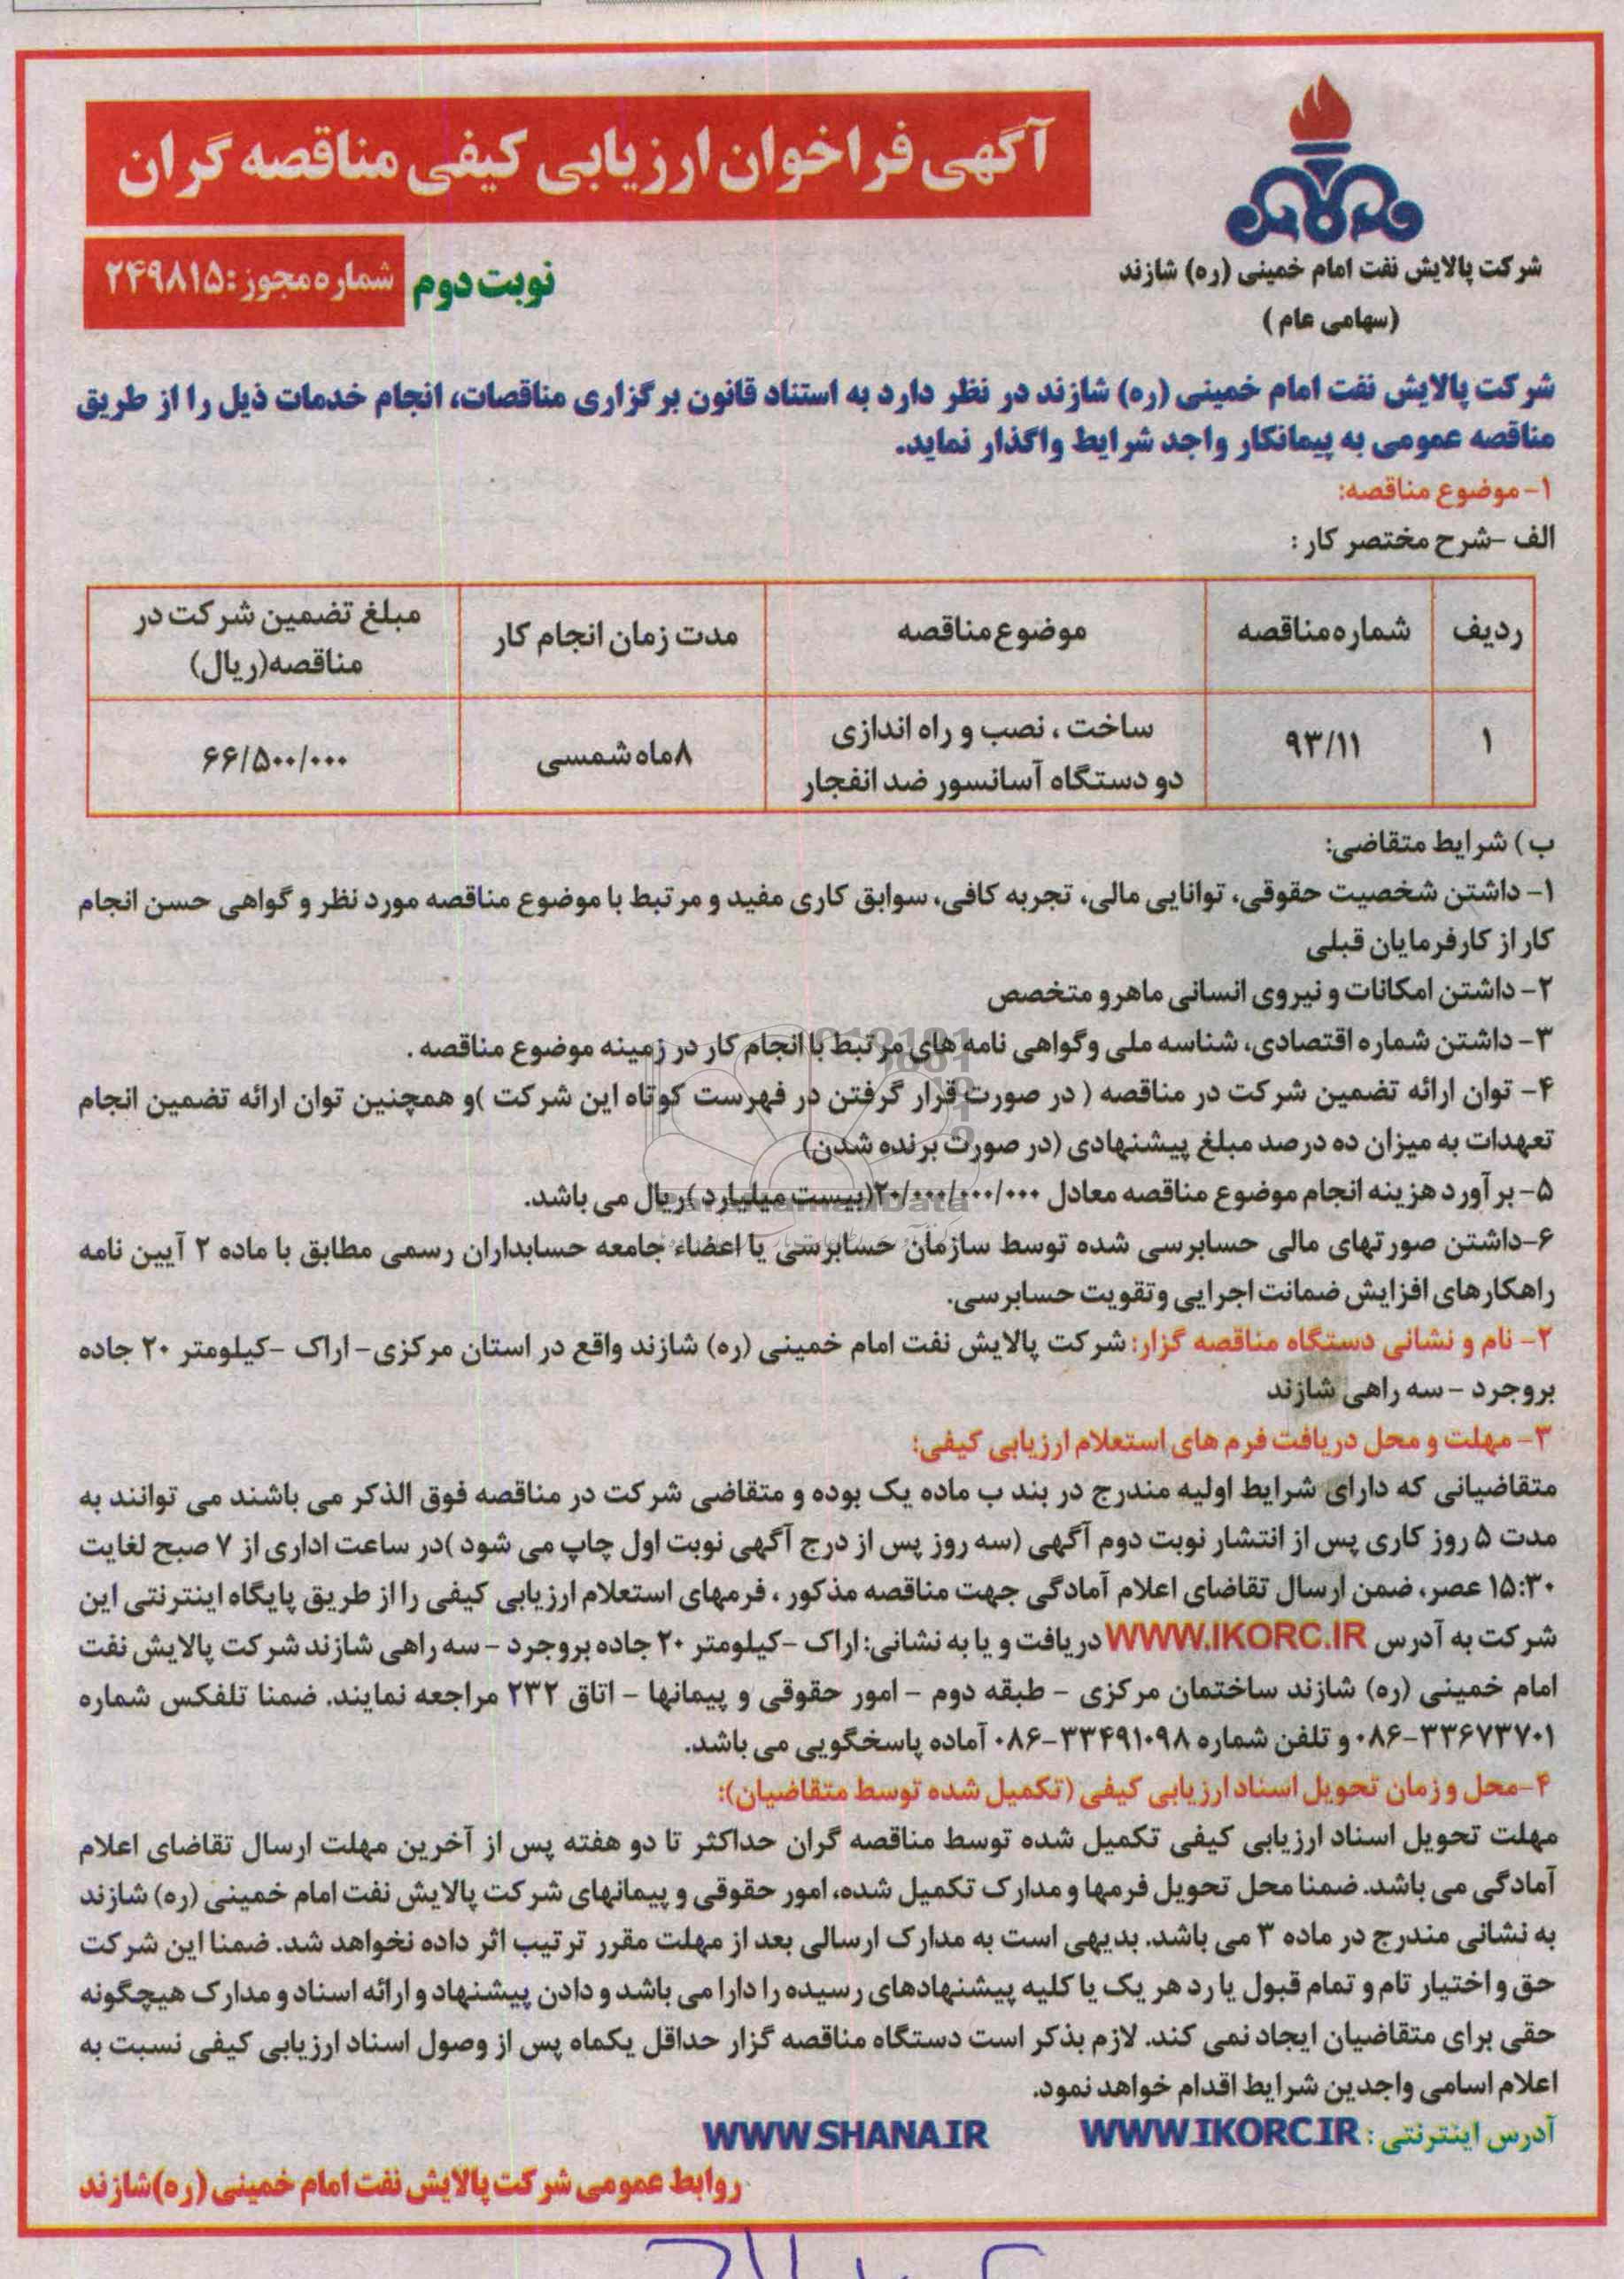 آگهی فراخوان ارزیابی کیفی مناقصه گران
شرکت پالایش نفت امام خمینی (ره) شازند
(سهامی عام)
نوبت دوم
شماره مجوز: ۲۴۹۸۱۵
شرکت پالایش نفت امام خمینی (ره) شازند در نظر دارد به استناد قانون برگزاری مناقصات، انجام خدمات ذیل را از طریق
مناقصه عمومی به پیمانکار واجد شرایط واگذار نماید.
۱- موضوع مناقصه:
الف -شرح مختصر کار :
ردیف شماره مناقصه موضوع مناقصه مدت زمان انجام کار مبلغ تضمین شرکت در
مناقصه(ریال)
۱ ۹۳/۱۱ ساخت ، نصب و راه اندازی
دو دستگاه آسانسور ضد انفجار ۸ماه شمسی ۶۶/۵۰۰/۰۰۰
ب) شرایط متقاضی:
۱- داشتن شخصیت حقوقی، توانایی مالی، تجربه کافی، سوابق کاری مفید و مرتبط با موضوع مناقصه مورد نظر و گواهی حسن انجام
کار از کارفرمایان قبلی
۲- داشتن امکانات و نیروی انسانی ماهر و متخصص
۳- داشتن شماره اقتصادی، شناسه ملی وگواهی نامه های مرتبط با انجام کار در زمینه موضوع مناقصه .
۴- توان ارائه تضمین شرکت در مناقصه ( در صورت قرار گرفتن در فهرست کوتاه این شرکت )و همچنین توان ارائه تضمین انجام
تعهدات به میزان ده درصد مبلغ پیشنهادی (در صورت برنده شدن)
۵- بر آورد هزینه انجام موضوع مناقصه معادل ۲۰/۰۰۰/۰۰۰/۰۰۰(بیست میلیارد )ریال می باشد.
۶-داشتن صورتهای مالی حسابرسی شده توسط سازمان حسابرسی یا اعضاء جامعه حسابداران رسمی مطابق با ماده ۲ آیین نامه
راهکارهای افزایش ضمانت اجرایی وتقویت حسابرسی.
۲- نام و نشانی دستگاه مناقصه گزار: شرکت پالایش نفت امام خمینی (ره) شازند واقع در استان مرکزی- اراک -کیلومتر ۲۰ جاده
بروجرد - سه راهی شازند
۳- مهلت و محل دریافت فرم های استعلام ارزیابی کیفی:
متقاضیانی که دارای شرایط اولیه مندرج در بند ب ماده یک بوده و متقاضی شرکت در مناقصه فوق الذکر می باشند می توانند به
مدت ۵ روز کاری پس از انتشار نوبت دوم آگهی (سه روز پس از درج آگهی نوبت اول چاپ می شود )در ساعت اداری از ۷ صبح لغایت
۱۵:۳۰ عصر، ضمن ارسال تقاضای اعلام آمادگی جهت مناقصه مذکور ، فرمهای استعلام ارزیابی کیفی را از طریق پایگاه اینترنتی این
شرکت به آدرس WWW.IKORC.IR دریافت و یا به نشانی: اراک -کیلومتر ۲۰ جاده بروجرد - سه راهی شازند شرکت پالایش نفت
امام خمینی (ره) شازند ساختمان مرکزی - طبقه دوم - امور حقوقی و پیمانها - اتاق ۲۳۲ مراجعه نمایند. ضمنا تلفکس شماره
۰۸۶-۳۳۶۷۳۷۰۱ و تلفن شماره ۰۸۶-۳۳۴۹۱۰۹۸ آماده پاسخگویی می باشد.
۴-محل و زمان تحویل اسناد ارزیابی کیفی (تکمیل شده توسط متقاضیان):
مهلت تحویل اسناد ارزیابی کیفی تکمیل شده توسط مناقصه گران حداکثر تا دو هفته پس از آخرین مهلت ارسال تقاضای اعلام
آمادگی می باشد. ضمنا محل تحویل فرمها و مدارک تکمیل شده، امور حقوقی و پیمانهای شرکت پالایش نفت امام خمینی (ره) شازند
به نشانی مندرج در ماده ۳ می باشد. بدیهی است به مدارک ارسالی بعد از مهلت مقرر ترتیب اثر داده نخواهد شد. ضمنا این شرکت
حق و اختیار تام و تمام قبول یا رد هر یک یا کلیه پیشنهادهای رسیده را دارا می باشد و دادن پیشنهاد و ارائه اسناد و مدارک هیچگونه
حقی برای متقاضیان ایجاد نمی کند. لازم بذکر است دستگاه مناقصه گزار حداقل یکماه پس از وصول اسناد ارزیابی کیفی نسبت به
اعلام اسامی واجدین شرایط اقدام خواهد نمود.
آدرس اینترنتی : WWW.IKORC.IR WWW.SHANA.IR
روابط عمومی شرکت پالایش نفت امام خمینی (ره)شازند